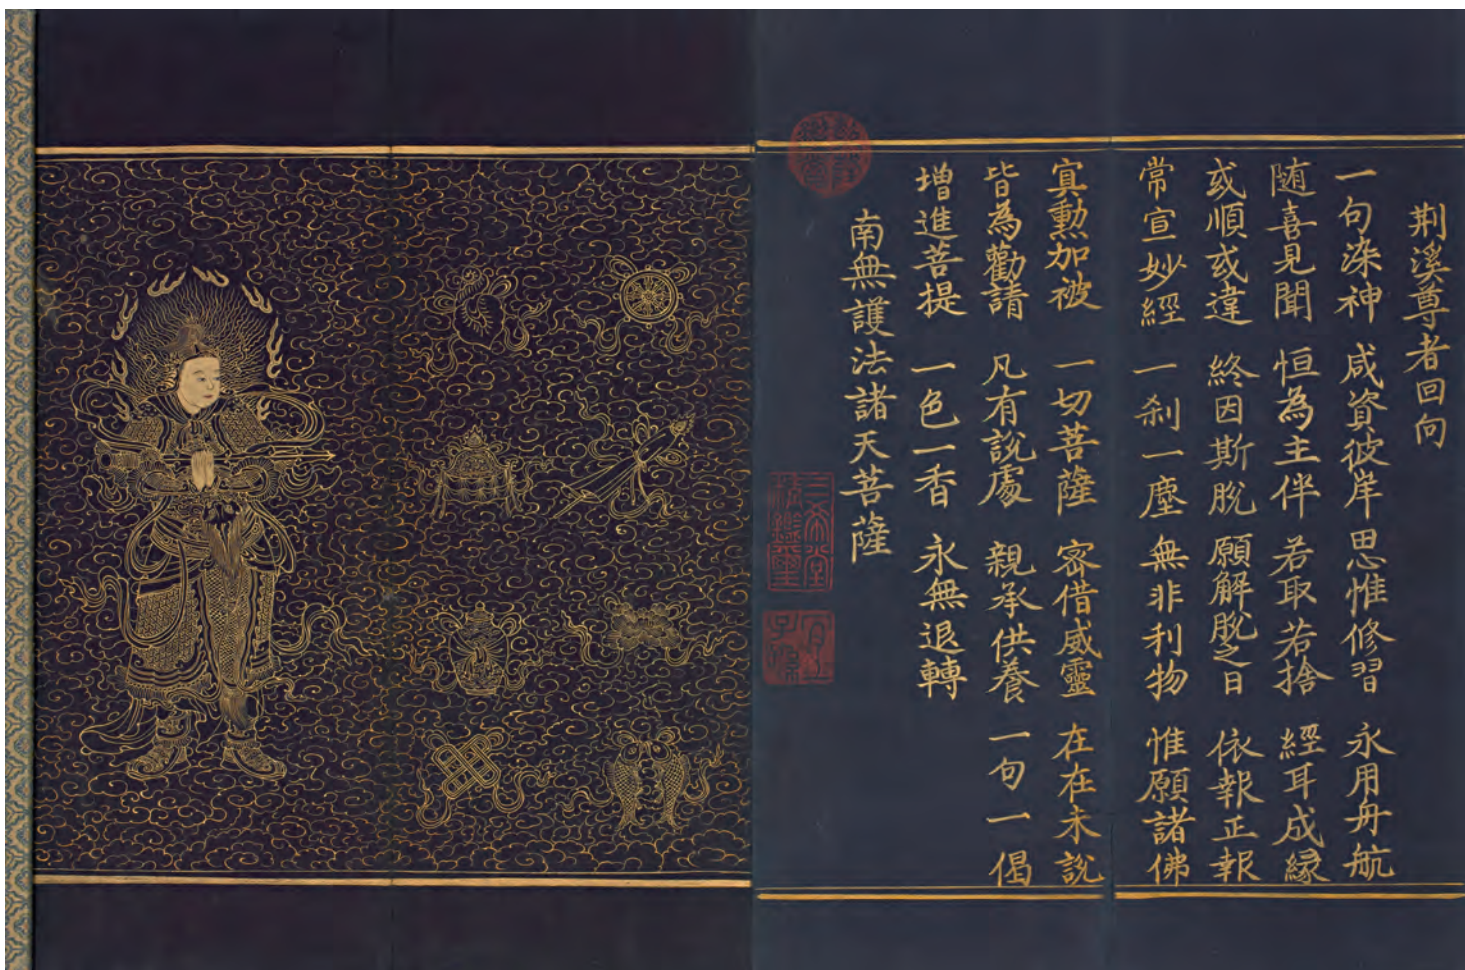 荆溪尊者回向
一句染神 咸資彼岸 思惟修習 永用舟航
随喜見聞 恒為主伴 若取若捨 經耳成縁
或順或違 終因斯脫 願解脫之日 依報正報
常宣妙經 一刹一塵 無非利物 惟願諸佛
冥勳加被 一切菩薩 密借威靈 在在未說
皆為勸請 凡有說處 親承供養 一句一偈
增進菩提 一色一香 永無退轉
南無護法諸天菩薩
三希堂
精鑑璽
宜子孫